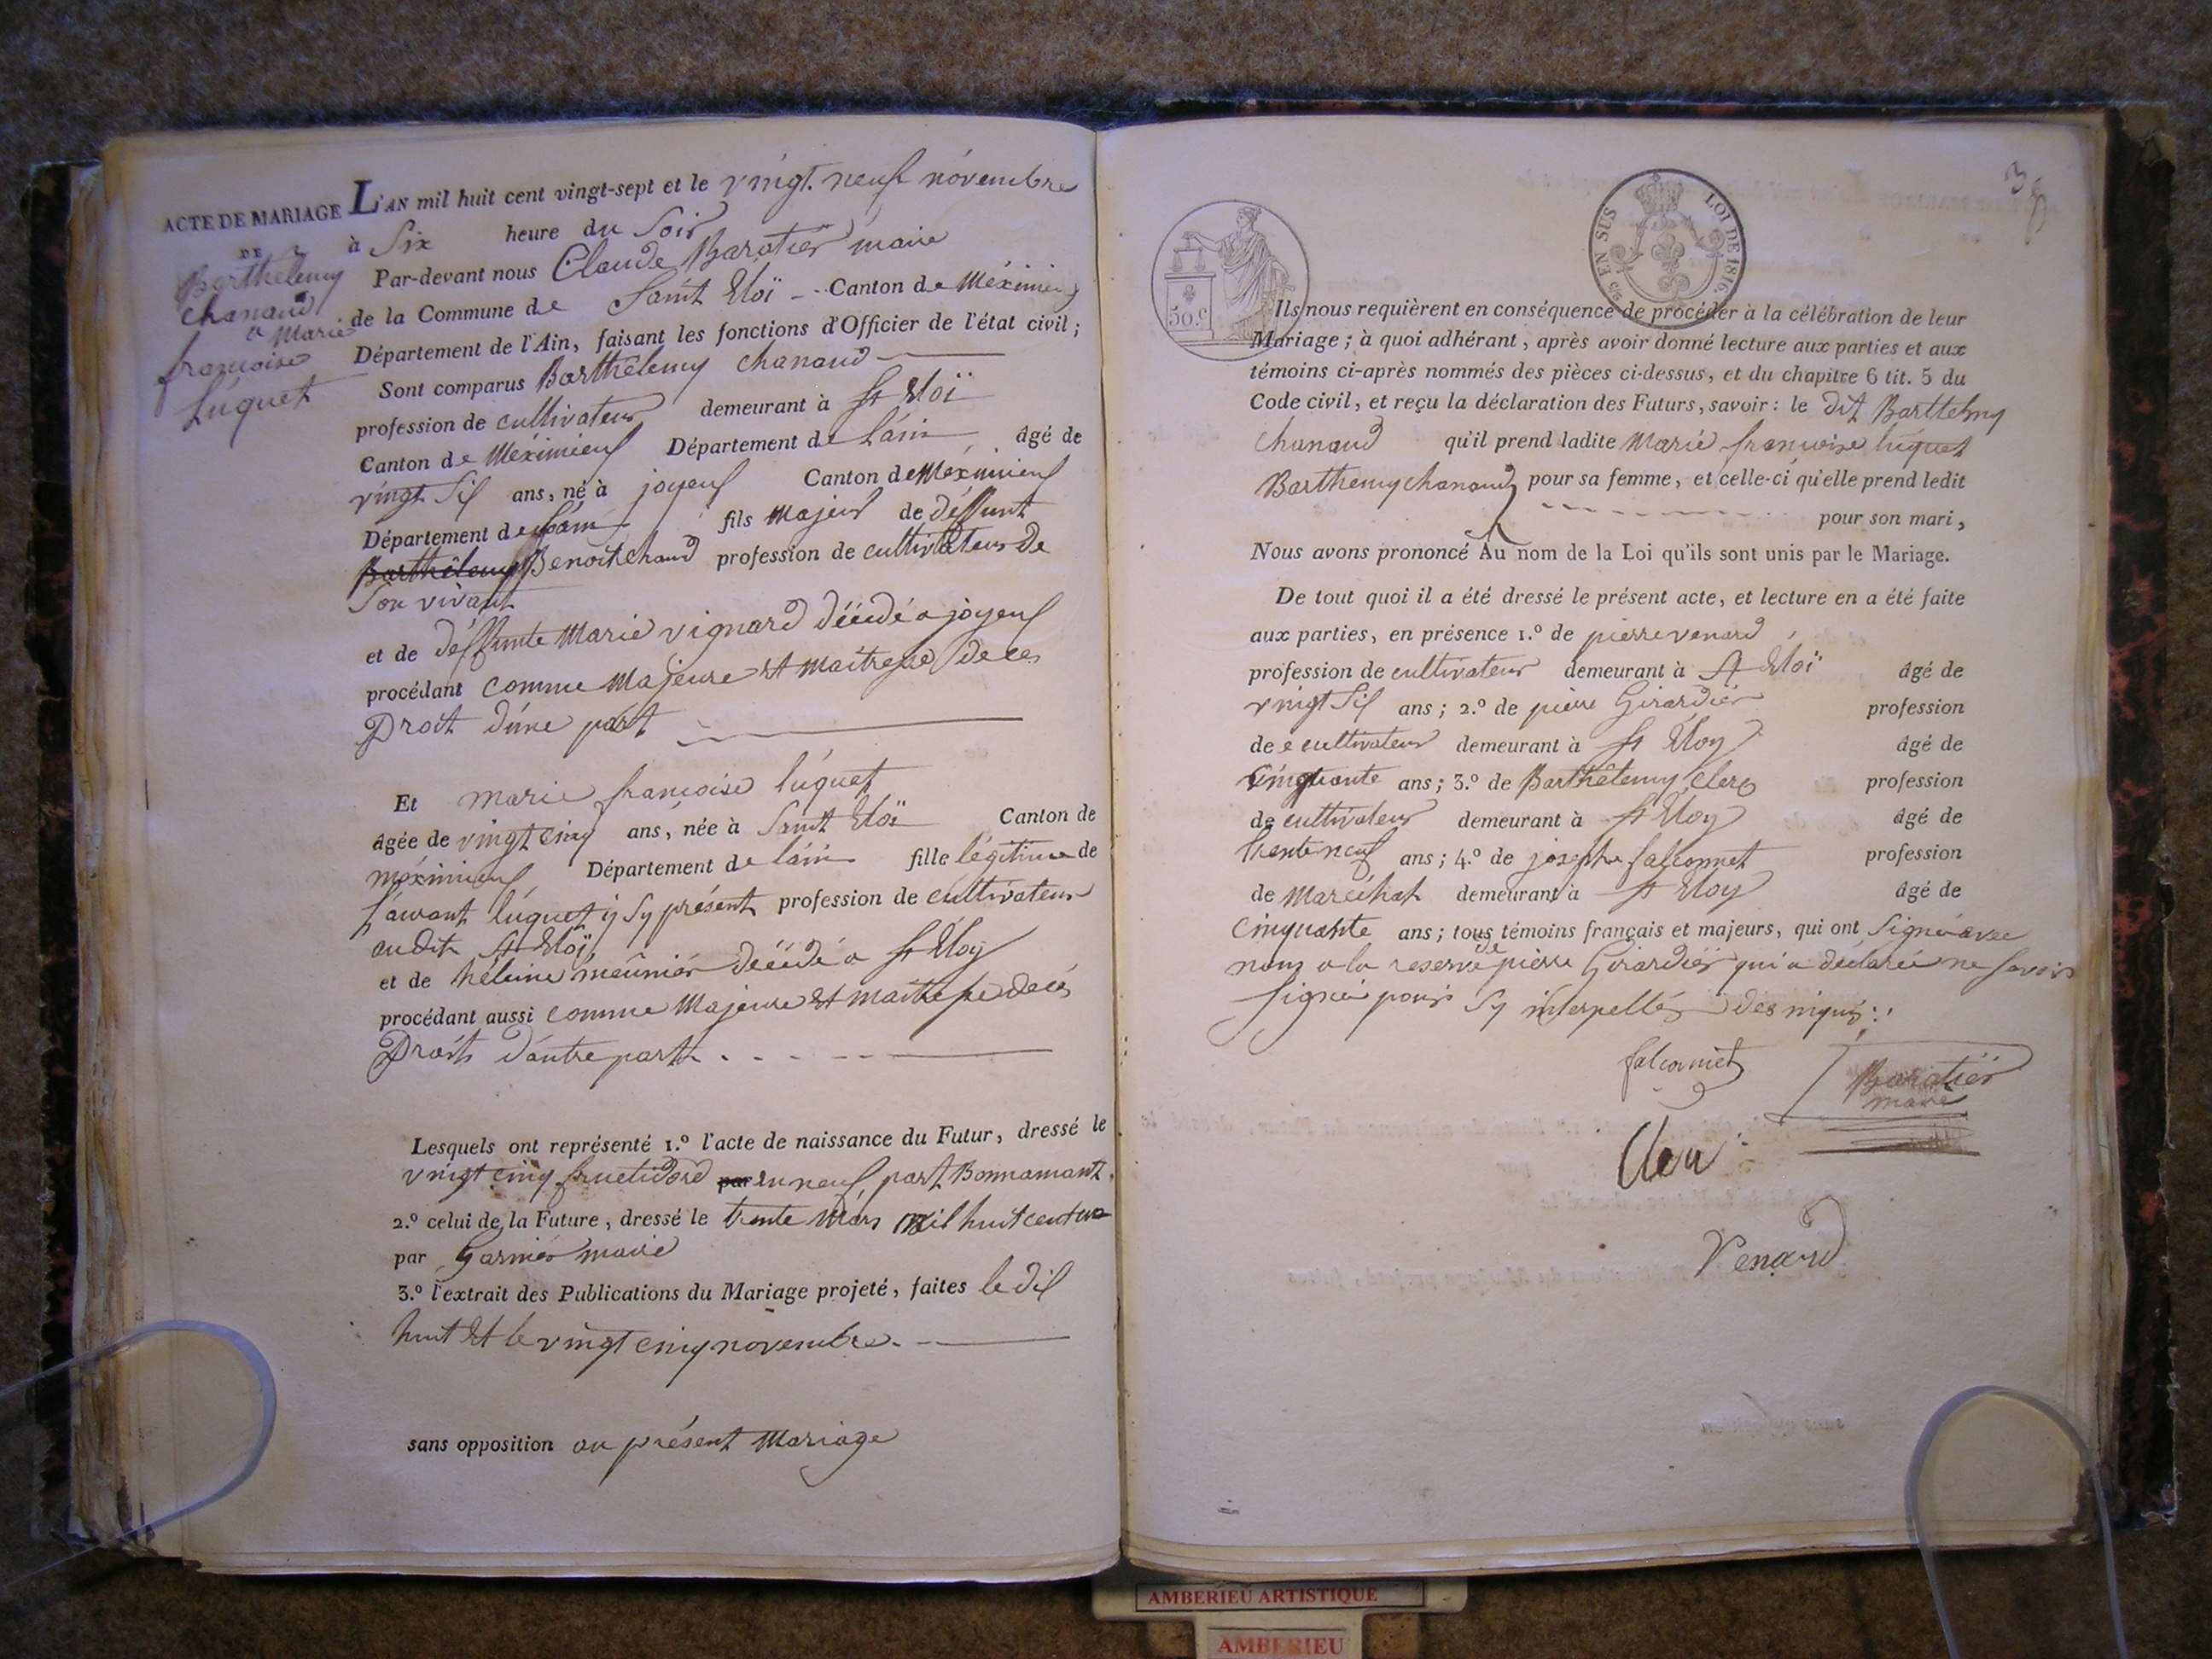 ACTE DE MARIAGE
DE
Barthélemy
chanaud
a Marie
françoise
luquet
L'AN mil huit cent vingt-sept et le vingt. neuf novembre
à Six heure du Soir
Par-devant nous Claude Baratier maire
de la Commune de Saint Eloï Canton de Méximieu
Département de l'Ain, faisant les fonctions d'Officier de l'état civil ;
Sont comparus Barthélemy chanaud
profession de cultivateur demeurant à St Eloï
Canton de Méximieux Département de l'áin âgé de
vingt Six ans, né à joyeux Canton de Méximieux
Département de l'áin fils Majeur de deffunt
Barthélemy Benoit chand profession de cultivateur de
Son vivant
et de deffunte Marie vignard décédé a joyeux
procédant comme Majeure et Maitresse de ces
Droit d'une part
Et marie françoise luquet
âgée de vingt cinq ans, née à Saint Eloï Canton de
méximieux Département de l'áin fille légitime de
luquet présent profession de cultivateur
audit St Eloï
et de héleine meûnier décédé a St Eloy
procédant aussi comme Majeure et maitresse de ces
Droits d'autre part
Lesquels ont représenté 1.º l'acte de naissance du Futur, dressé le
vingt cinq fructidord par an neuf part Bonnamant
2.º celui de la Future, dressé le trente Mars mil huit cent un
par Garnier maire
3.º l'extrait des Publications du Mariage projeté, faites le dix
huit et le vingt cinq novembre
sans opposition au présent Mariage
38
50.c
EN SUS LOI DE 1816.
Ils nous requièrent en conséquence de procéder à la célébration de leur
Mariage ; à quoi adhérant, après avoir donné lecture aux parties et aux
témoins ci-après nommés des pièces ci-dessus, et du chapitre 6 tit. 5 du
Code civil, et reçu la déclaration des Futurs, savoir : le dit Barttelmy
chanaud qu'il prend ladite Marie françoise luquet
Barthemy chanaud pour sa femme, et celle-ci qu'elle prend ledit
pour son mari,
Nous avons prononcé Au nom de la Loi qu'ils sont unis par le Mariage.
De tout quoi il a été dressé le présent acte, et lecture en a été faite
aux parties, en présence 1.º de pierre venard
profession de cultivateur demeurant à St Eloï âgé de
vingt Six ans ; 2.º de pierre Girardier profession
de cultivateur demeurant à St Eloy âgé de
Cinquante ans ; 3.º de Barthélemy Clerc profession
de cultivateur demeurant à St Eloy âgé de
trente neuf ans ; 4.º de joseph falconnet profession
de Maréchat demeurant à St Eloy âgé de
Cinquante ans ; tous témoins français et majeurs, qui ont Signé avec
nous a la reserve de pierre Girardier qui a déclaré ne savoir
Signé pour Sy interpellés
falconnet
Baratier
maire
Clerc
Venard
AMBERIEU ARTISTIQUE
AMBERIEU